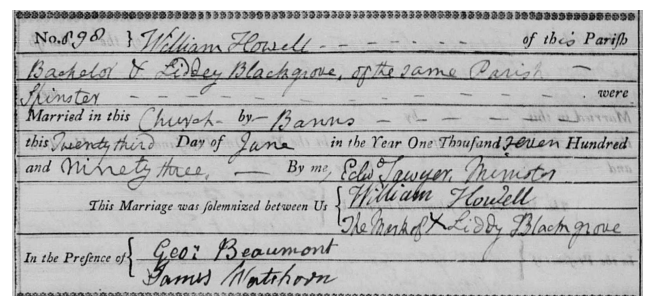 No. 898 } William Howell - - - - - - of this Parish
Bachelor & Liddey Blackgrove, of the same Parish -
Spinster - - - - - - - - - - - - were
Married in this Church - by - Banns - - - -
this Twenty third Day of June in the Year One Thousand seven Hundred
and Ninety three, - By me, Edwd Sawyer, Minister
This Marriage was solemnized between Us { William Howell
The Mark of X Liddy Blackgrove
In the Presence of { Geo: Beaumont
James Watshorn